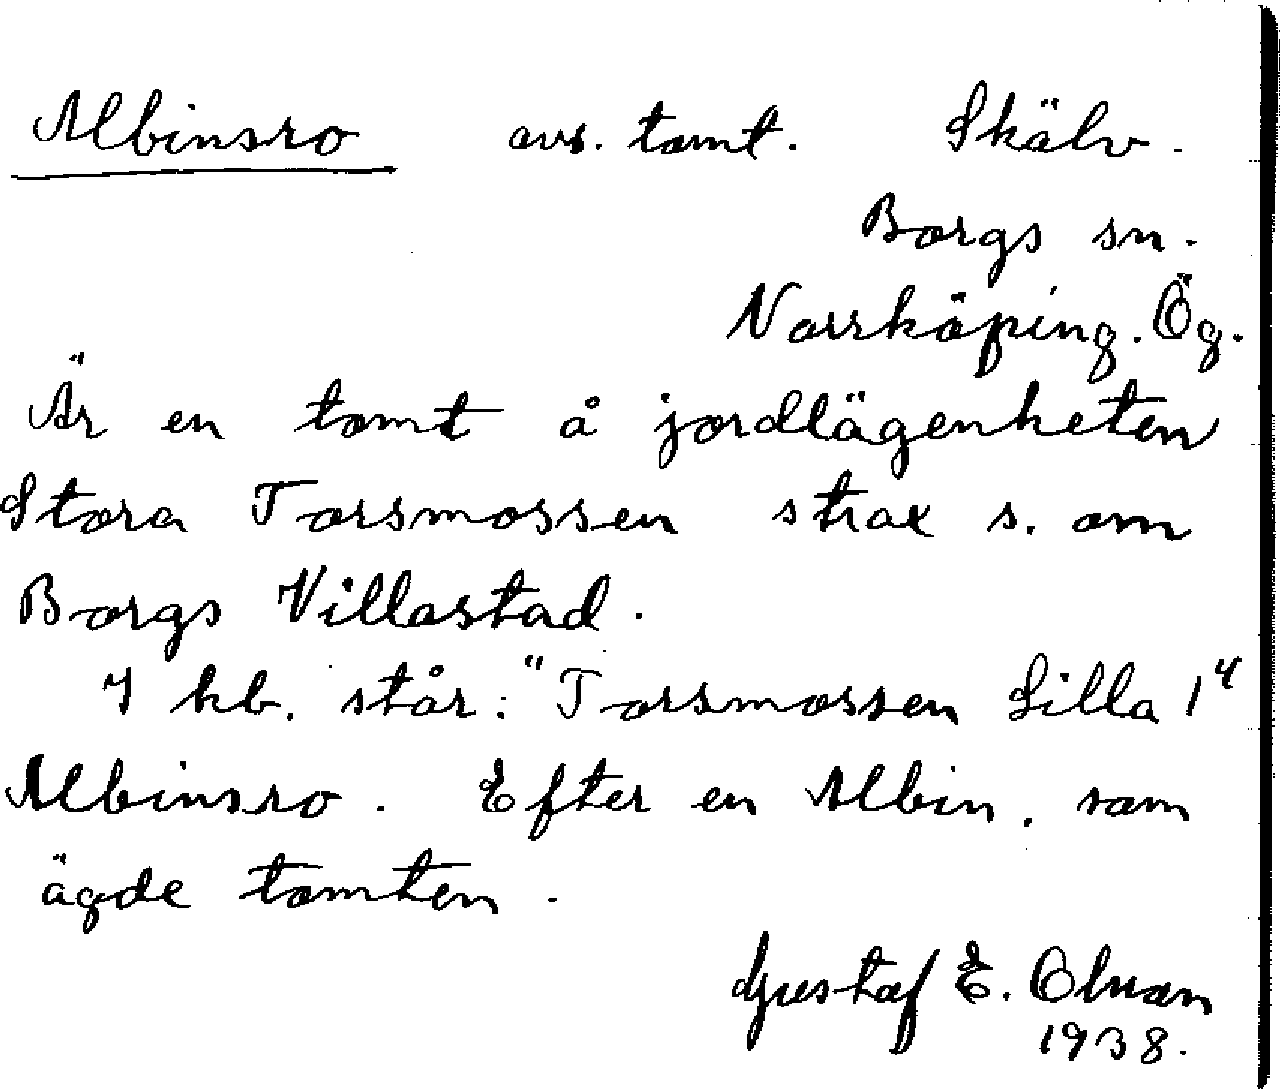 Albinsro avs. tomt. Skälv.
Borgs sn.
Norrköping. Ög.
Är en tomt å jordlägenheten
Stora Torsmossen strax s. om
Borgs Villastad.
I kb. står: "Torsmossen Lilla 1"
Albinsro. Efter en Albin, som
ägde tomten.
Gustaf E. Olsson
1938.